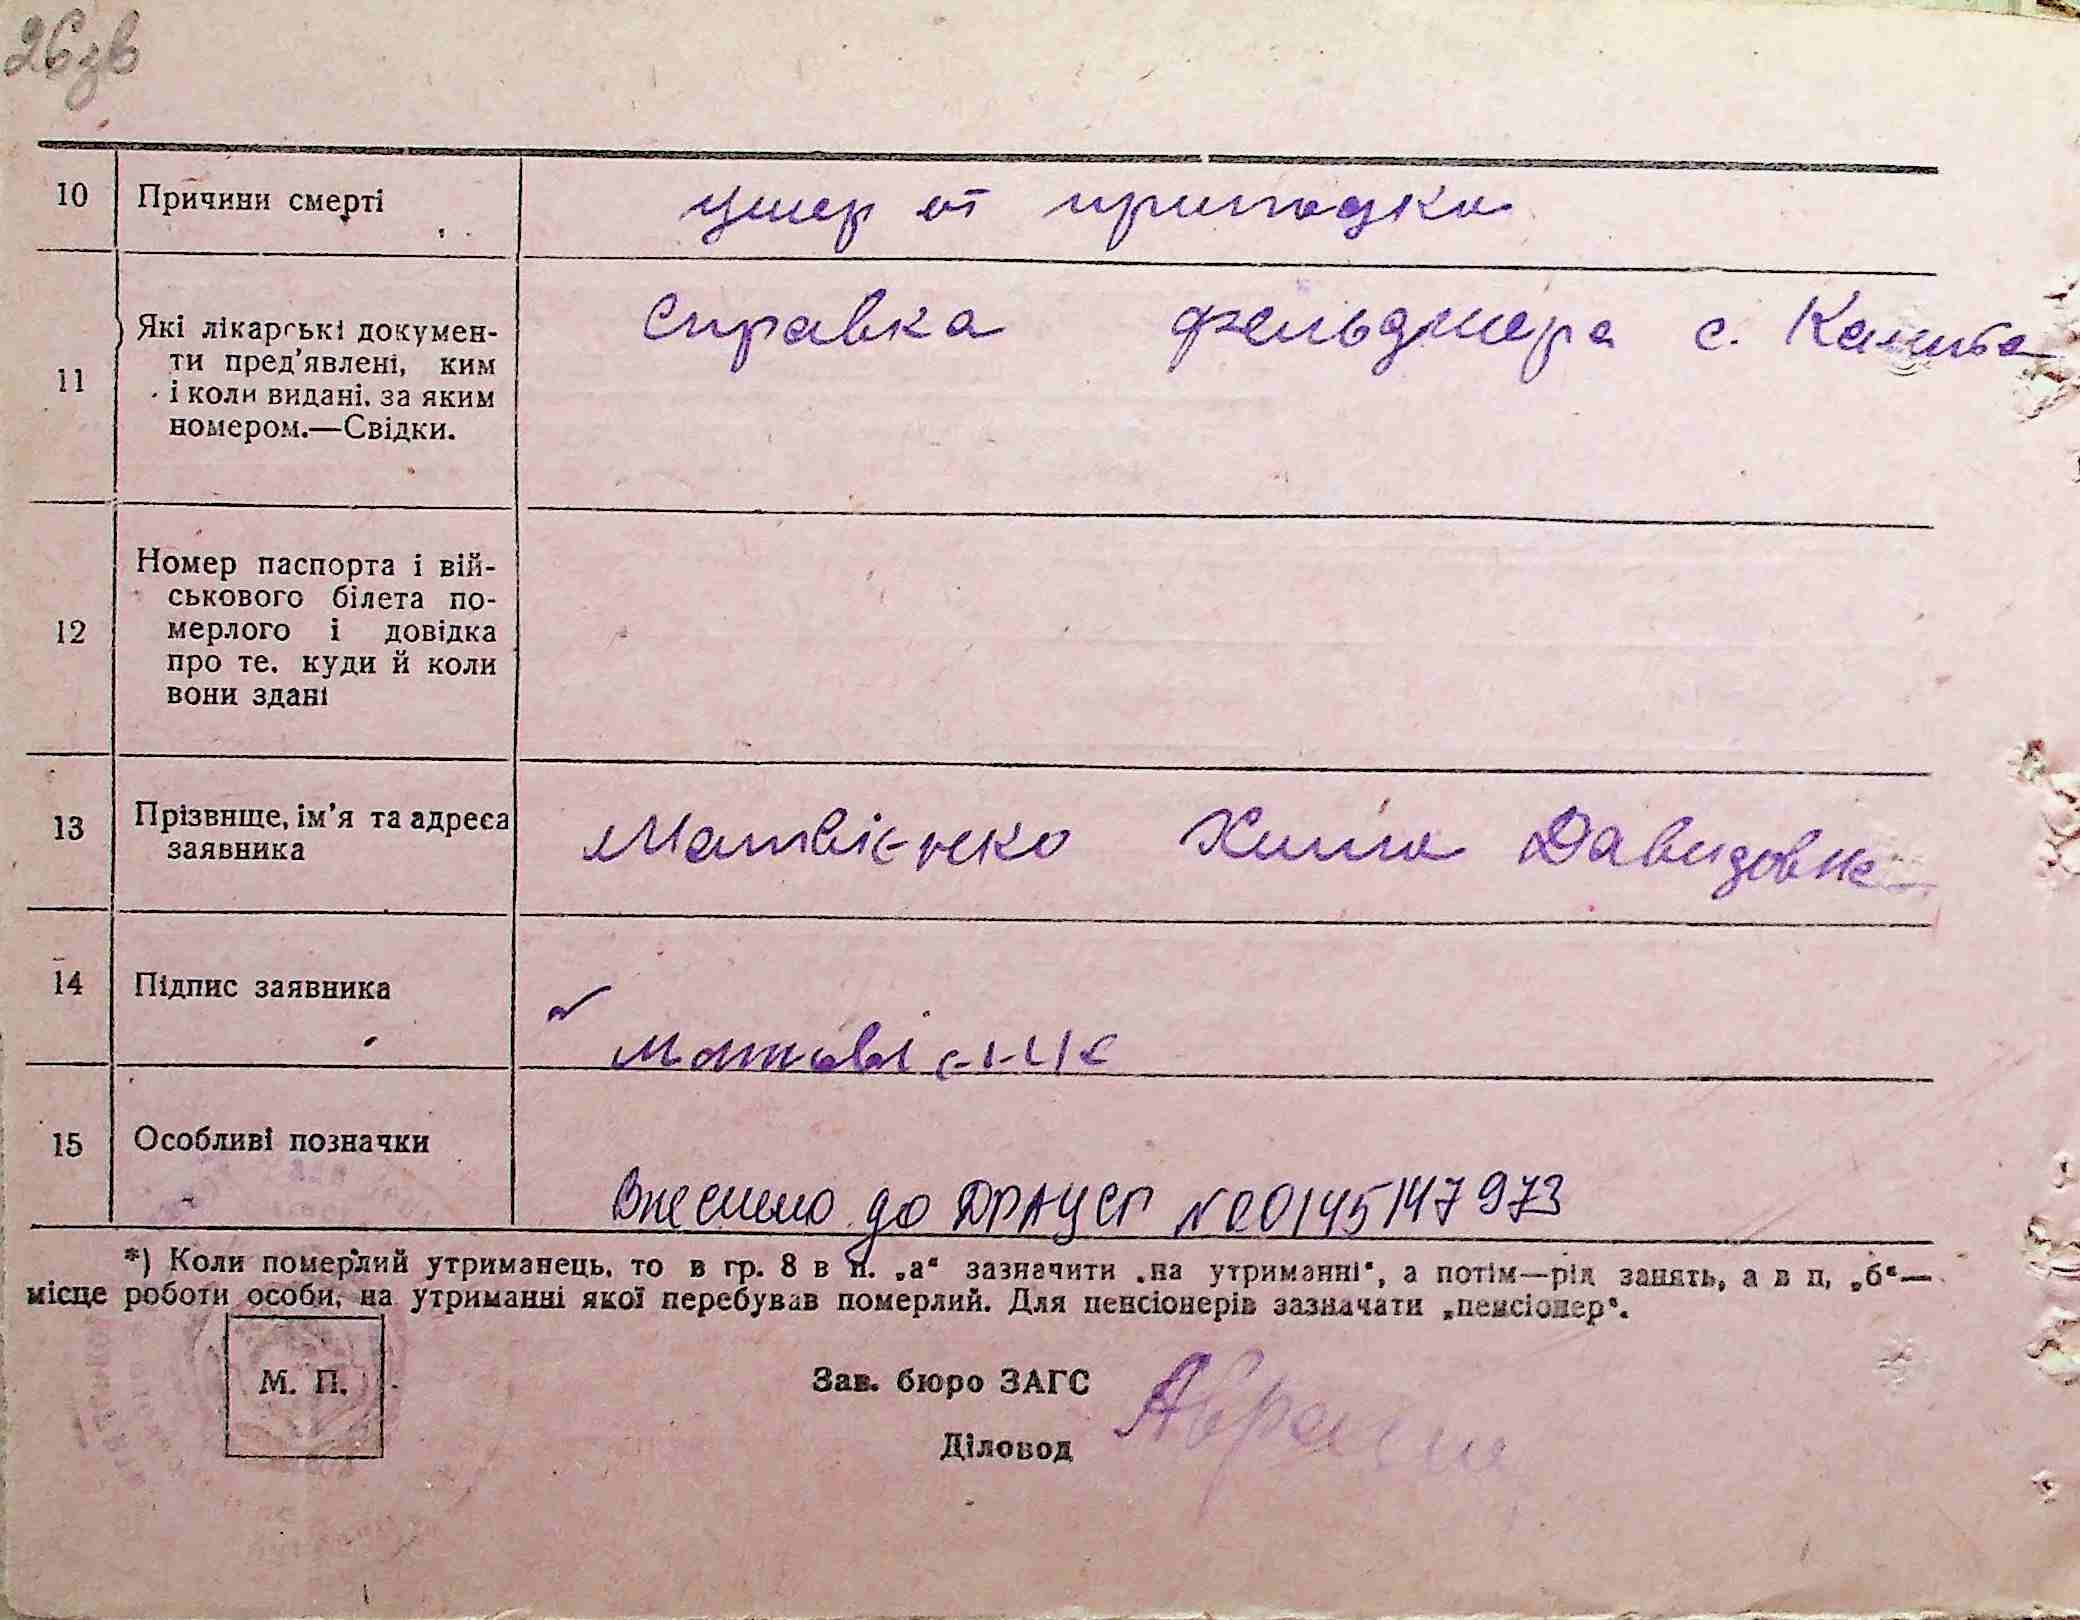 26зв
10 Причини смерті умер от припадка
11 Які лікарські докумен- справка фельдшера с. Калита
ти пред'явлені, ким
і коли видані, за яким
номером.—Свідки.
12 Номер паспорта і вій-
ськового білета по-
мерлого і довідка
про те, куди й коли
вони здані
13 Прізвище, ім'я та адреса Матвієнко Хима Давидовна
заявника
14 Підпис заявника
15 Особливі позначки Внесено до ДРАЦСГ №00145147973
*) Коли померлий утриманець, то в гр. 8 в п. „а“ зазначити „на утриманні“, а потім—рід занять, а в п, „б“—
місце роботи особи, на утриманні якої перебував померлий. Для пенсіонерів зазначати „пенсіонер“.
М. П.
Зав. бюро ЗАГС
Діловод